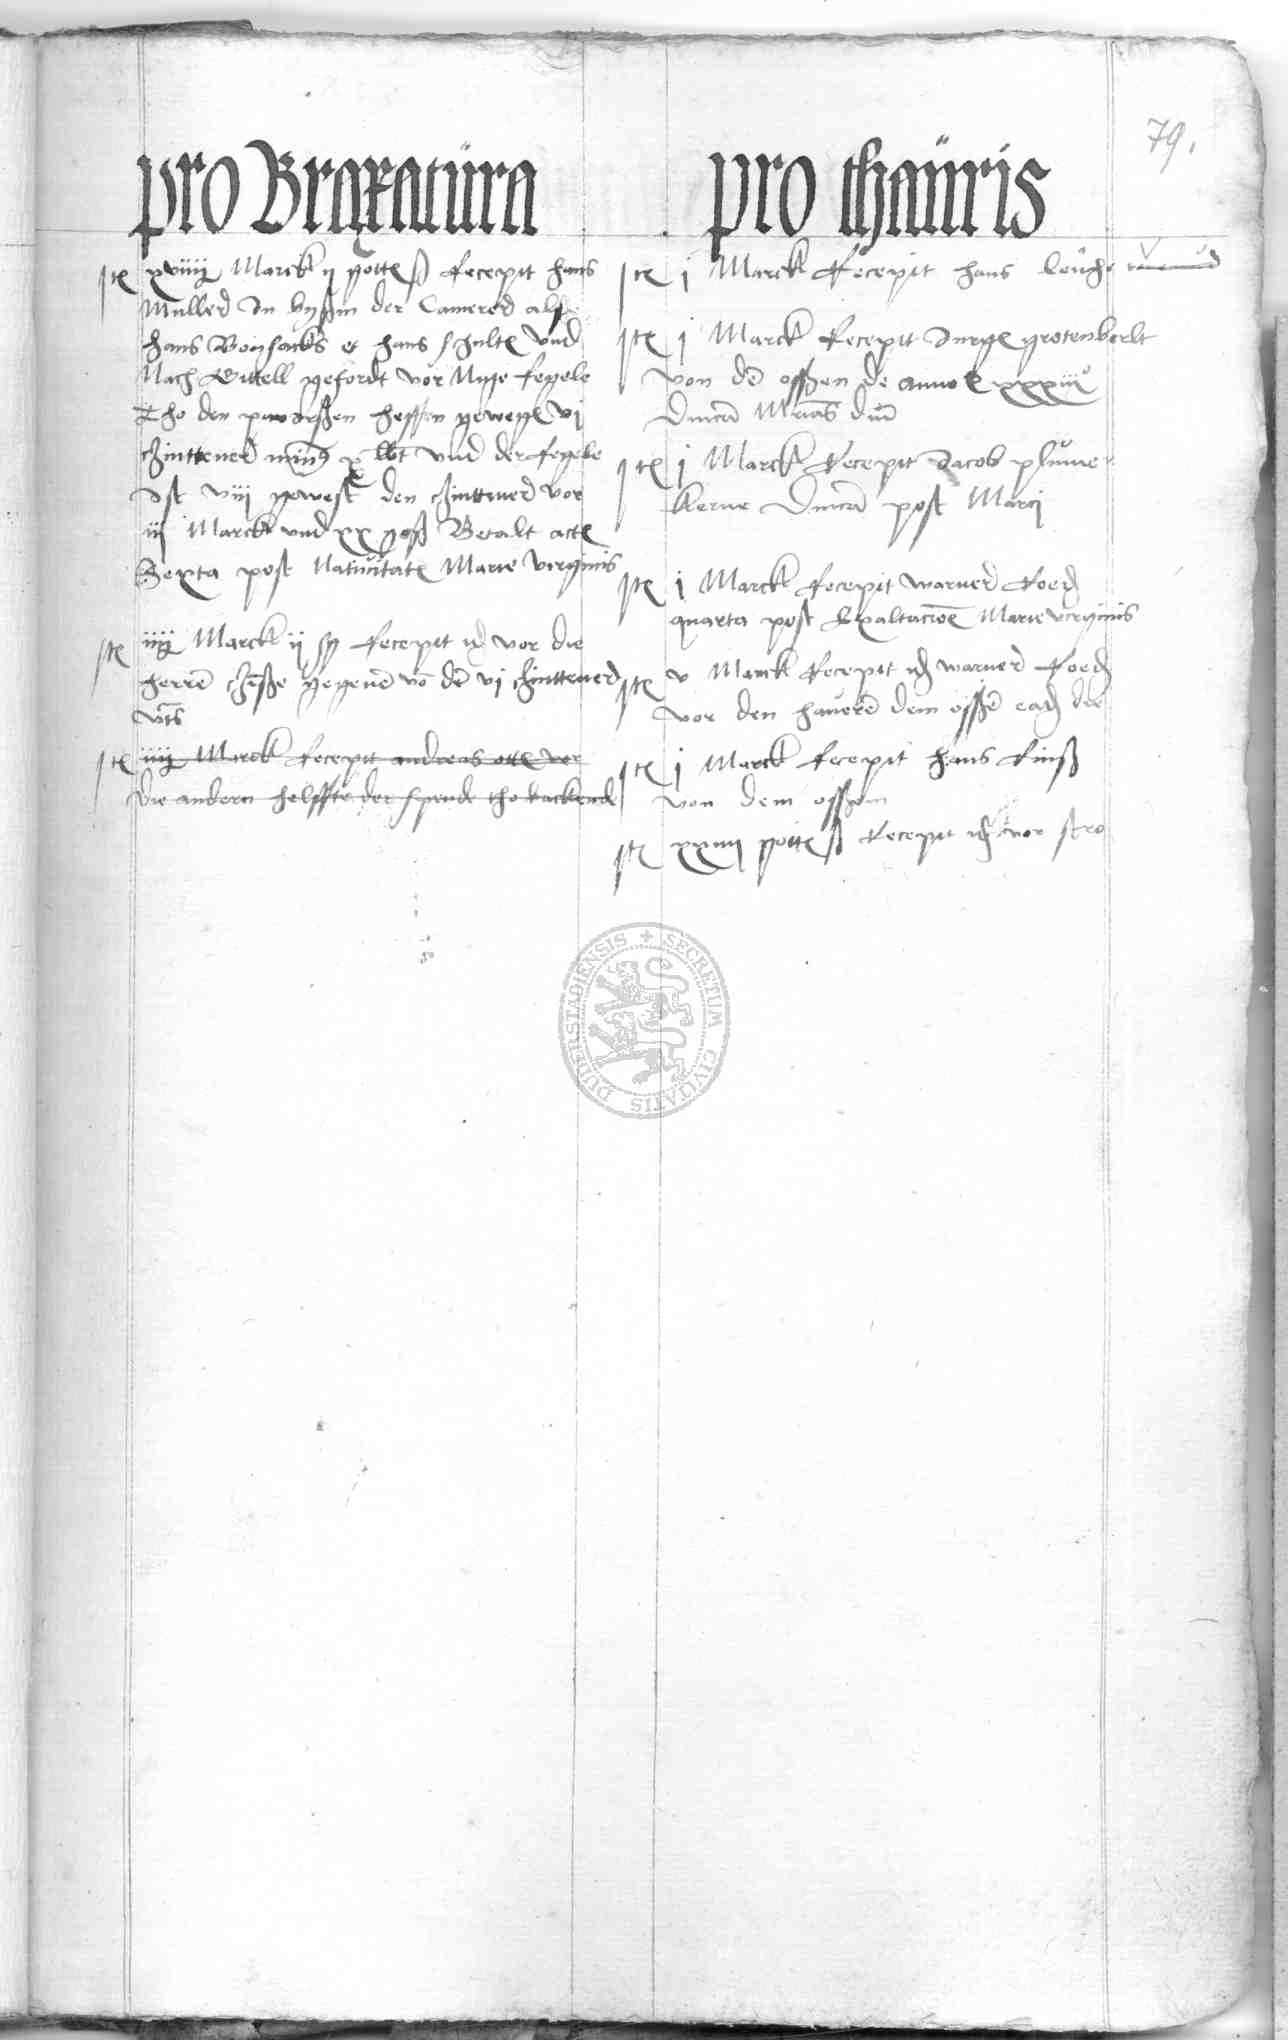 79.
pro Braxatura
Ite xviiij Marck ij gotte ß Recepit hans
Muller In bysin der Camerer als
hans Bonsacks et hans schulte vnd
Nach Gittell gefordt vor Nige fegele
Tho den pworßen hessen gewege vj
czinttener min9 x lbt vnd der fegele
Ist viij gewest den czinttener vor
iij Marck vnd xx gosß Betalt acte
Sexta post Natiuitate Marie virginis
Ite iiij Marck ij sy Recepit id vor die
herre gegene vo de vj czinttener
vts
Ite iiij Marck Recepit andreas otte vor
die andern helffte der spende tho backende
pro thauris
Ite j Marck Recepit hans leuche
Ite j Marck Recepit Jurge grotenberlt
von de ossen de anno xxxiij
Ite j Marck Recepit Jacob plume
kerne Dnica post Marci
Ite j Marck Recepit warner Roed
quarta post Exaltacioe Marie virginis
Ite v Marck Recepit id warner Roed
vor den hauere dem osse ead die
Ite j Marck Recepit hans Finß
von dem ossen
Ite xxiiij gotte ß Recepit id vor stro
DUDERSTADIENSIS + SECRETUM CIVITATIS